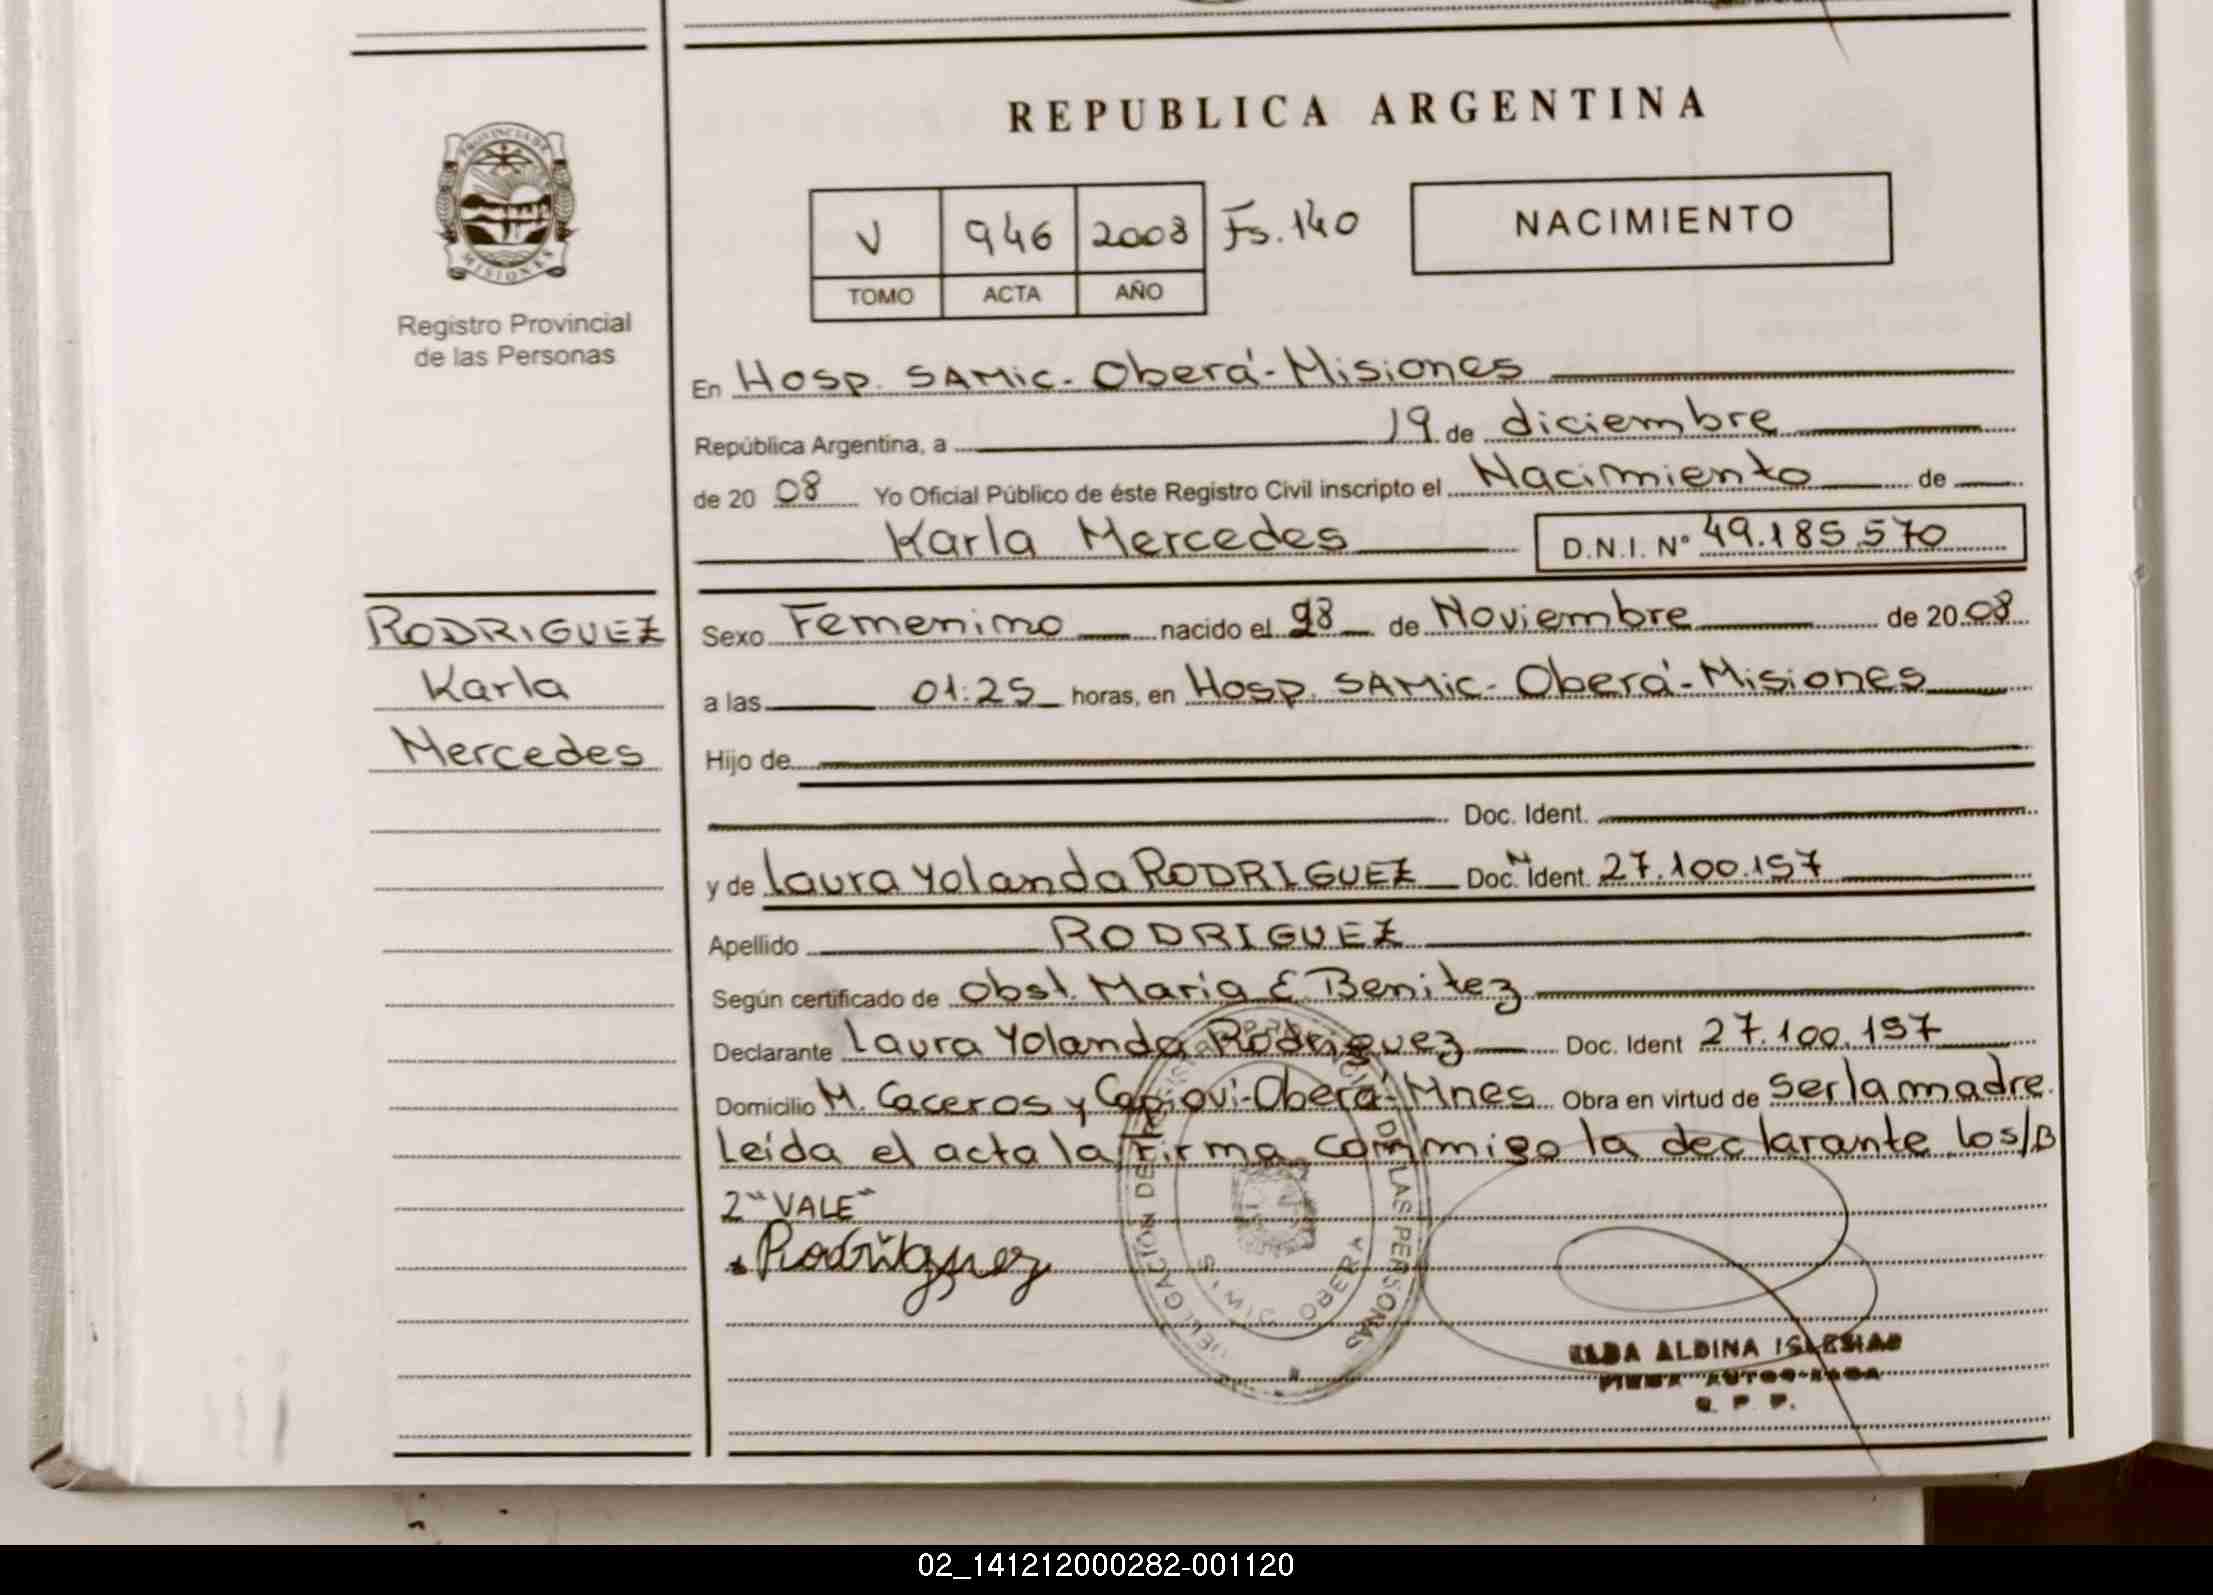 REPUBLICA ARGENTINA
PROVINCIA DE MISIONES
Registro Provincial
de las Personas
V 946 2008 Fs. 140
TOMO ACTA AÑO
NACIMIENTO
En Hosp. SAMic - Oberá - Misiones
República Argentina, a 19 de diciembre
de 20 08 Yo Oficial Público de éste Registro Civil inscripto el Nacimiento de
Karla Mercedes D.N.I. Nº 49.185.570
RODRIGUEZ
Karla
Mercedes
Sexo Femenino nacido el de Noviembre de 20 08
a las 01:25 horas, en Hosp. SAMic - Oberá - Misiones
Hijo de
Doc. Ident.
y de Laura Yolanda RODRIGUEZ Doc. N Ident. 27.100.157
Apellido RODRIGUEZ
Según certificado de Obst. Maria E Benitez
Declarante Laura Yolanda Rodriguez Doc. Ident 27.100.157
Domicilio M. Caceros y Capiovi - Oberá - Mnes Obra en virtud de ser la madre.
Leída el acta la firma conmigo la declarante. Los/B
2 "VALE"
Rodriguez
DELEGACION DE LAS PERSONAS
OBERA
ELBA ALBINA IGLESIAS
FIRMA AUTORIZADA
R. P. P.
02_141212000282-001120